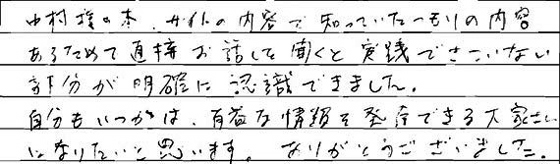 中村様の本、サイトの内容で知っていたつもりの内容
あらためて直接お話しを聞くと実践できていない
部分が明確に認識できました。
自分もいつかは、有益な情報を発信できる大家さん
になりたいと思います。ありがとうございました。